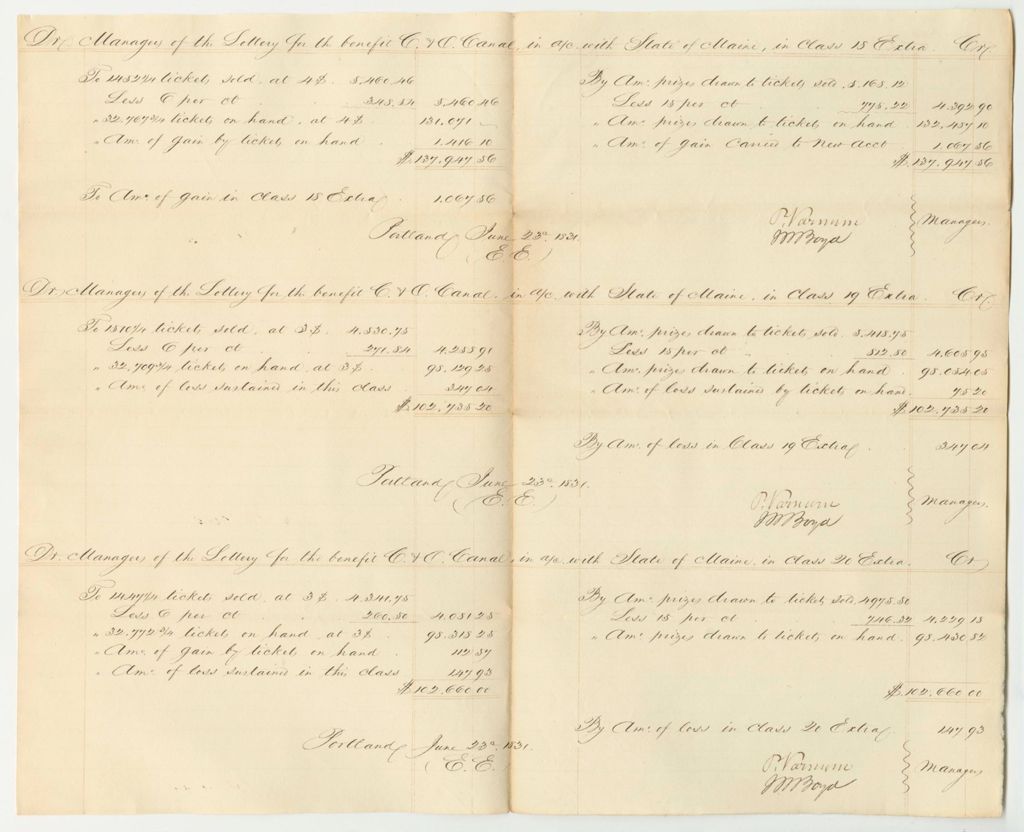 Dr. Managers of the Lottery for the benefit C. & O. Canal, in a/c. with State of Maine, in Class 18 Extra. Cr.
To 1452 1/4 tickets sold, at 4$ 5.460 46
Less 6 per ct 348.54 5.460 46
" 32.767 3/4 tickets on hand, at 4$ 131.071 –
" Amt. of gain by tickets on hand 1.416 10
$.137.947 56
By Amt. prizes drawn to tickets sold, 5.168.12
Less 15 per ct 775.22 4.392 90
" Amt. prizes drawn to tickets on hand. 132.487 10
" Amt. of gain carried to New Acct 1.067 56
$.137.947 56
To Amt. of gain in Class 18 Extra 1.067 56
Portland, June 23d. 1831.
(E.E.)
P. Varnum
JM Boyd
Managers.
Dr. Managers of the Lottery for the benefit C. & O. Canal, in a/c. with State of Maine, in Class 19 Extra. Cr.
To 1510 1/4 tickets sold, at 3$. 4.530.75
Less 6 per ct 271.84 4.258 91
" 32.709 3/4 tickets on hand at 3$. 98.129 25
" Amt. of loss sustained in this class 347 04
$.102.735 20
By Amt. prizes drawn to tickets sold. 5.418.75
Less 15 per ct 812.80 4.605 95
" Amt. prizes drawn to tickets on hand. 98.054 05
" Amt. of loss sustained by tickets on hand. 75 20
$.102.735 20
By Amt. of loss in Class 19 Extra. 347 04
Portland, June 23d. 1831.
(E.E.)
P. Varnum
JM Boyd
Managers.
Dr. Managers of the Lottery for the benefit C. & O. Canal, in a/c. with State of Maine, in Class 20 Extra. Cr.
To 1447 1/4 tickets sold, at 3$. 4.341.75
Less 6 per ct 260.50 4.081 25
" 32.772 3/4 tickets on hand, at 3$. 98.318 25
" Amt. of gain by tickets on hand 112 57
" Amt. of loss sustained in this class 147 93
$.102.660 00
By Amt. prizes drawn to tickets sold, 4975.50
Less 15 per ct 746.32 4.229 18
" Amt. prizes drawn to tickets on hand. 98.430 82
$.102.660 00
By Amt. of loss in Class 20 Extra. 147 93
Portland, June 23d. 1831.
(E.E.)
P. Varnum
JM Boyd
Managers